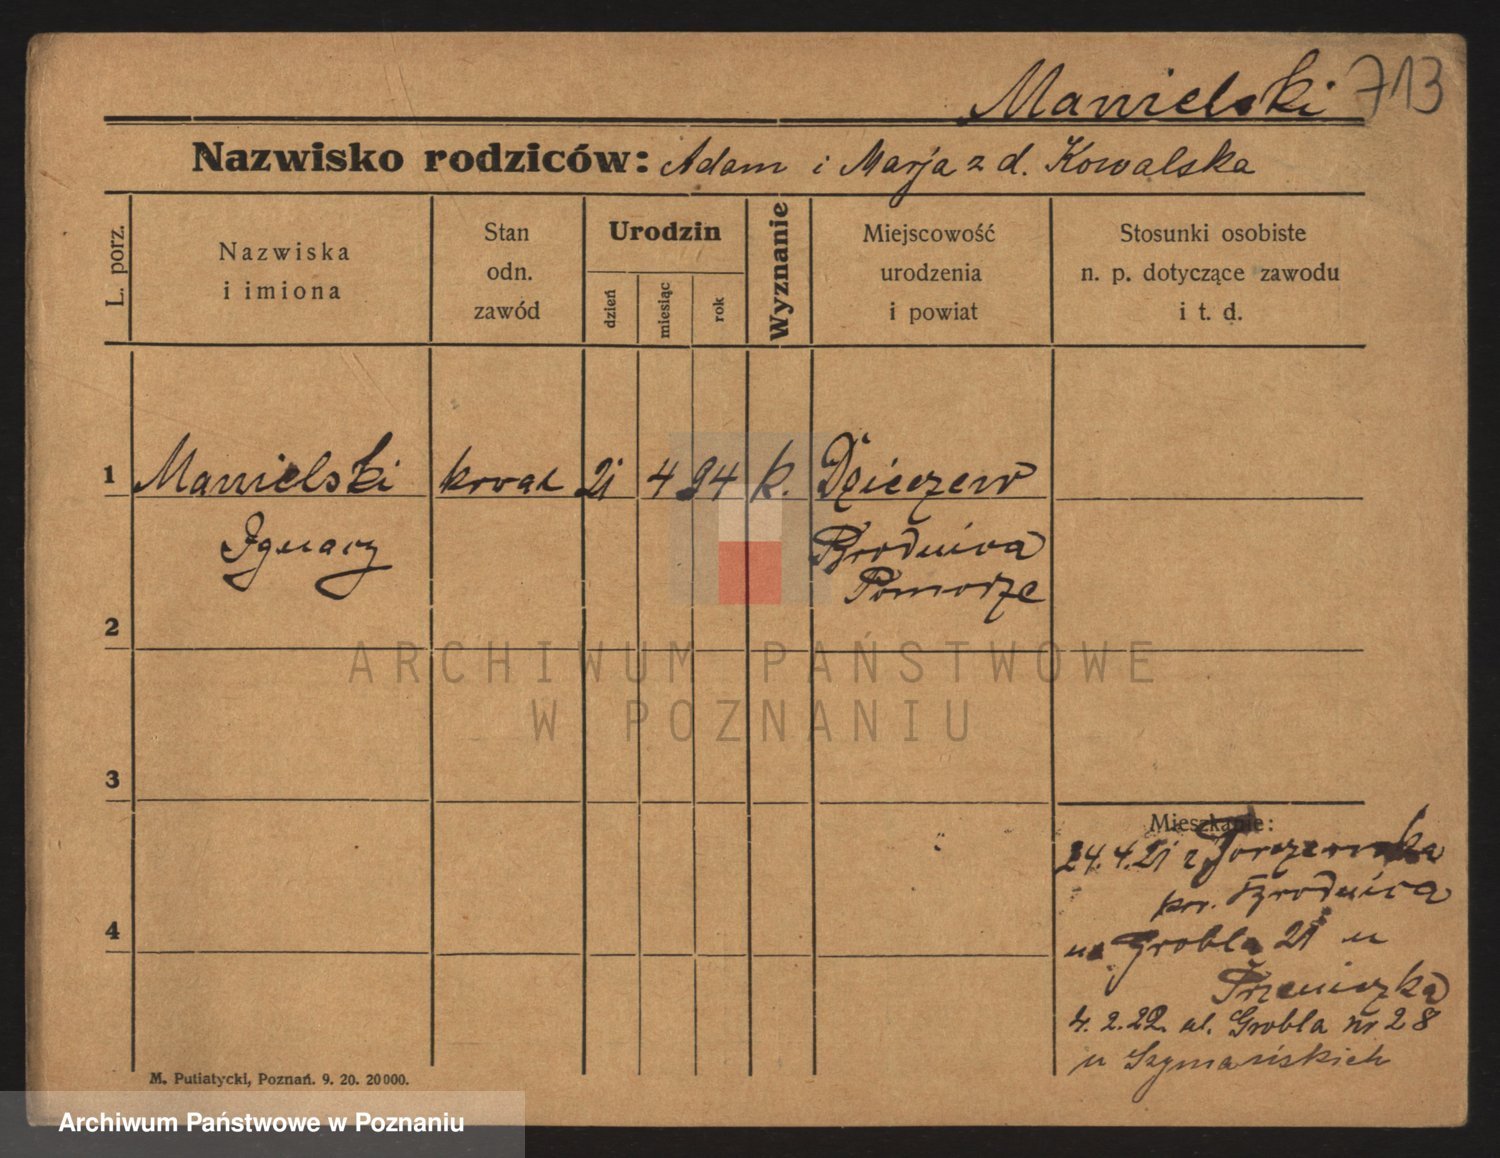 Manielski 713
Nazwisko rodziców: Adam i Marja z d. Kowalska
L. porz.
Nazwiska
i imiona
Stan
odn.
zawód
Urodzin
dzień
miesiąc
rok
Wyznanie
Miejscowość
urodzenia
i powiat
Stosunki osobiste
n. p. dotyczące zawodu
i t. d.
1 Manielski kowal 21 4 94 k.
Ignacy Brodnica
Pomorze
2
ARCHIWUM PAŃSTWOWE
W POZNANIU
3
4
Mieszkanie:
24.4.21 z
pow. Brodnica
na Grobla 21 u
4.2.22. ul. Grobla nr 28
u Szymańskich
M. Putiatycki, Poznań. 9. 20. 20000.
Archiwum Państwowe w Poznaniu